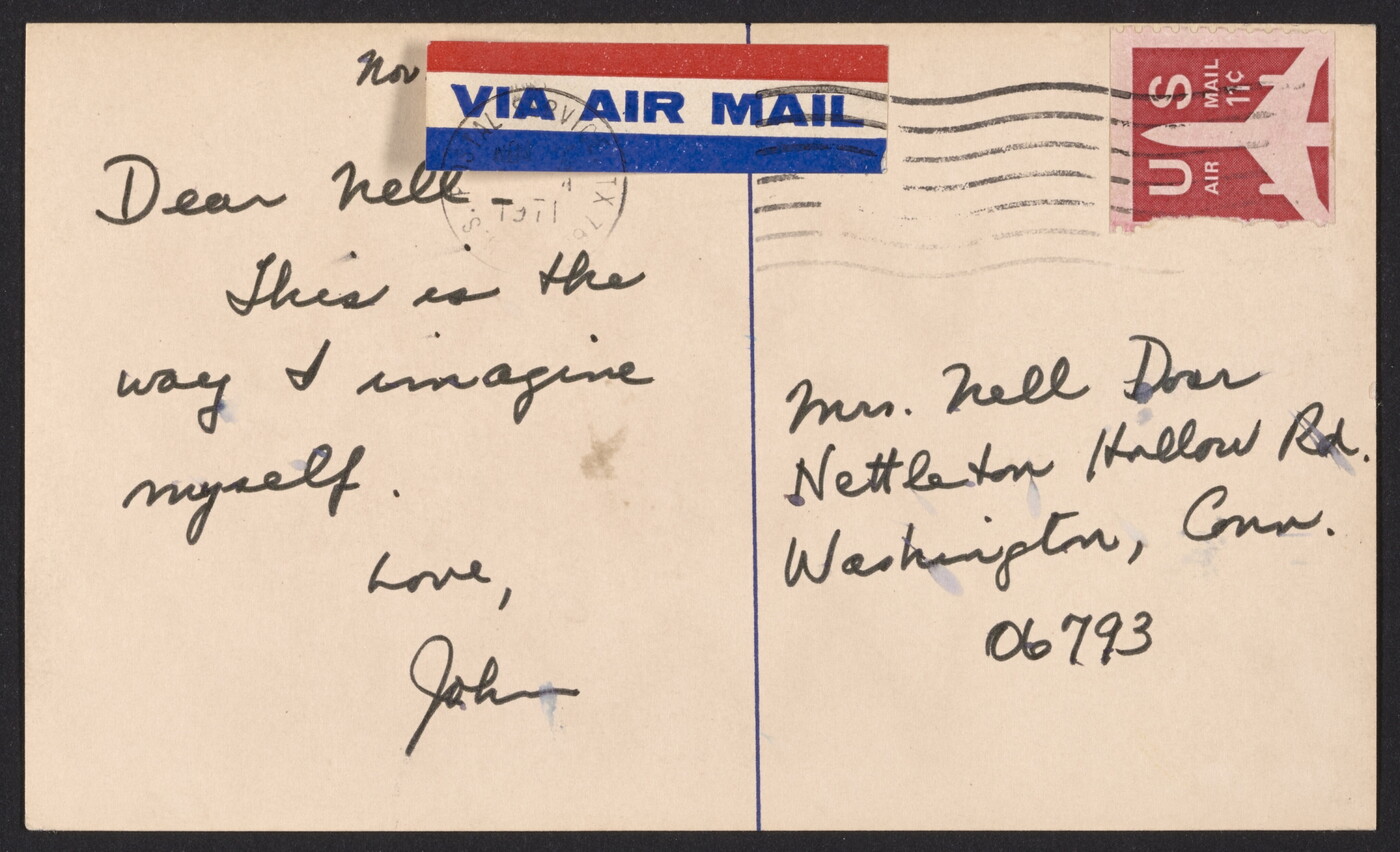 Nov
VIA AIR MAIL
US
AIR MAIL 11¢
Dear Nell –
This is the
way I imagine
myself.
Love,
John
Mrs. Nell Dorr
Nettleton Hollow Rd.
Washington, Conn.
06793